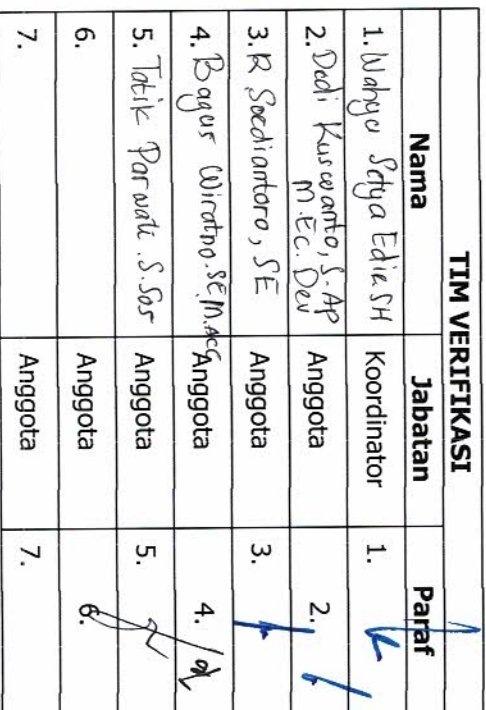 TIM VERIFIKASI
Nama Jabatan Paraf
1. Wahyu Setya Edie SH Koordinator 1.
2. Dedi Kuswanto, S.AP Anggota 2.
M.Ec.Dev
3. R Soediantoro, SE Anggota 3.
4. Bagus Wiratno.SE,M.Acc Anggota 4.
5. Tatik Parwati.S.Sos Anggota 5.
6. Anggota 6.
7. Anggota 7.